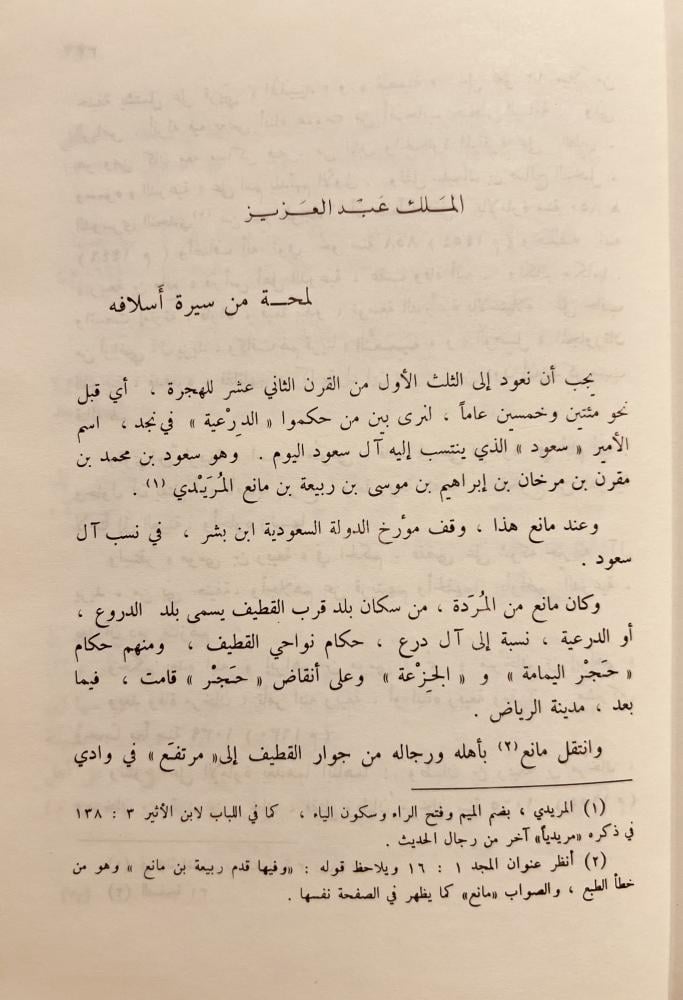 المَلك عَبْد العَزيز
لمحـة من سيرة أَسلافه
يجب أن نعود إلى الثلث الأول من القرن الثاني عشر للهجرة ، أي قبل
نحو مئتين وخمسين عاماً ، لنرى بين من حكموا « الدِرْعية » في نجد ، اسم
الأمير « سعود » الذي ينتسب إليه آل سعود اليوم . وهو سعود بن محمد بن
مقرن بن مرخان بن إبراهيم بن موسى بن ربيعة بن مانع المُرَيْدي (١) .
وعند مانع هذا ، وقف مؤرخ الدولة السعودية ابن بشر ، في نسب آل
سعود .
وكان مانع من المُرَدَة ، من سكان بلد قرب القطيف يسمى بلد الدروع ،
أو الدرعية ، نسبة إلى آل درع ، حكام نواحي القطيف ، ومنهم حكام
« حَجْر اليمامة » و « الجِزْعة » وعلى أنقاض « حَجْر » قامت ، فيما
بعد ، مدينة الرياض .
وانتقل مانع(٢) بأهله ورجاله من جوار القطيف إلى« مرتفَع » في وادي
(١) المريدي ، بضم الميم وفتح الراء وسكون الياء ، كما في اللباب لابن الأثير ٣ : ١٣٨
في ذكره «مريدياً» آخر من رجال الحديث .
(٢) أنظر عنوان المجد ١ : ١٦ ويلاحظ قوله : «وفيها قدم ربيعة بن مانع » وهو من
خطأ الطبع ، والصواب «مانع» كما يظهر في الصفحة نفسها .